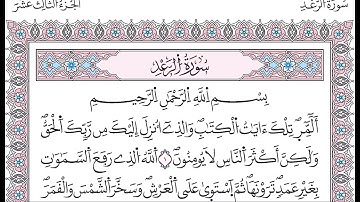 سُورَةُ الرَّعْدِ
الجُزْءُ الثَّالِثَ عَشَرَ
سُورَةُ الرَّعْدِ
بِسْمِ ٱللَّهِ ٱلرَّحْمَٰنِ ٱلرَّحِيمِ
الٓمٓرۚ تِلْكَ ءَايَٰتُ ٱلْكِتَٰبِۗ وَٱلَّذِىٓ أُنزِلَ إِلَيْكَ مِن رَّبِّكَ ٱلْحَقُّ
وَلَٰكِنَّ أَكْثَرَ ٱلنَّاسِ لَا يُؤْمِنُونَ ١ ٱللَّهُ ٱلَّذِى رَفَعَ ٱلسَّمَٰوَٰتِ
بِغَيْرِ عَمَدٍ تَرَوْنَهَاۖ ثُمَّ ٱسْتَوَىٰ عَلَى ٱلْعَرْشِۖ وَسَخَّرَ ٱلشَّمْسَ وَٱلْقَمَرَۖ